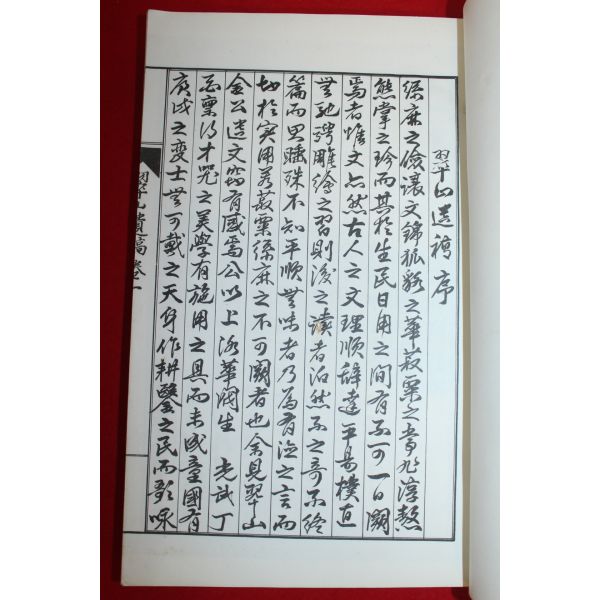 翠山遺稿序
絲麻之儉讓文錦狐貉之華菽粟之常非淳熬
熊掌之珍而其於生民日用之間有不可一日闕
焉者惟文亦然古人之文理順辭達平易樸直
無馳騁雕繪之習則後之讀者泊然不之奇不終
篇而思睡殊不知平順無味者乃為有德之言而
切於實用若菽粟絲麻之不可闕者也余見翠山
金公遺文窃有感焉公以上洛華閥生 光武丁
酉稟得才器之美學有施用之具而未成童國有
庚戌之变士無可戴之天身作耕鑿之民而歌咏
翠山遺稿 卷之一